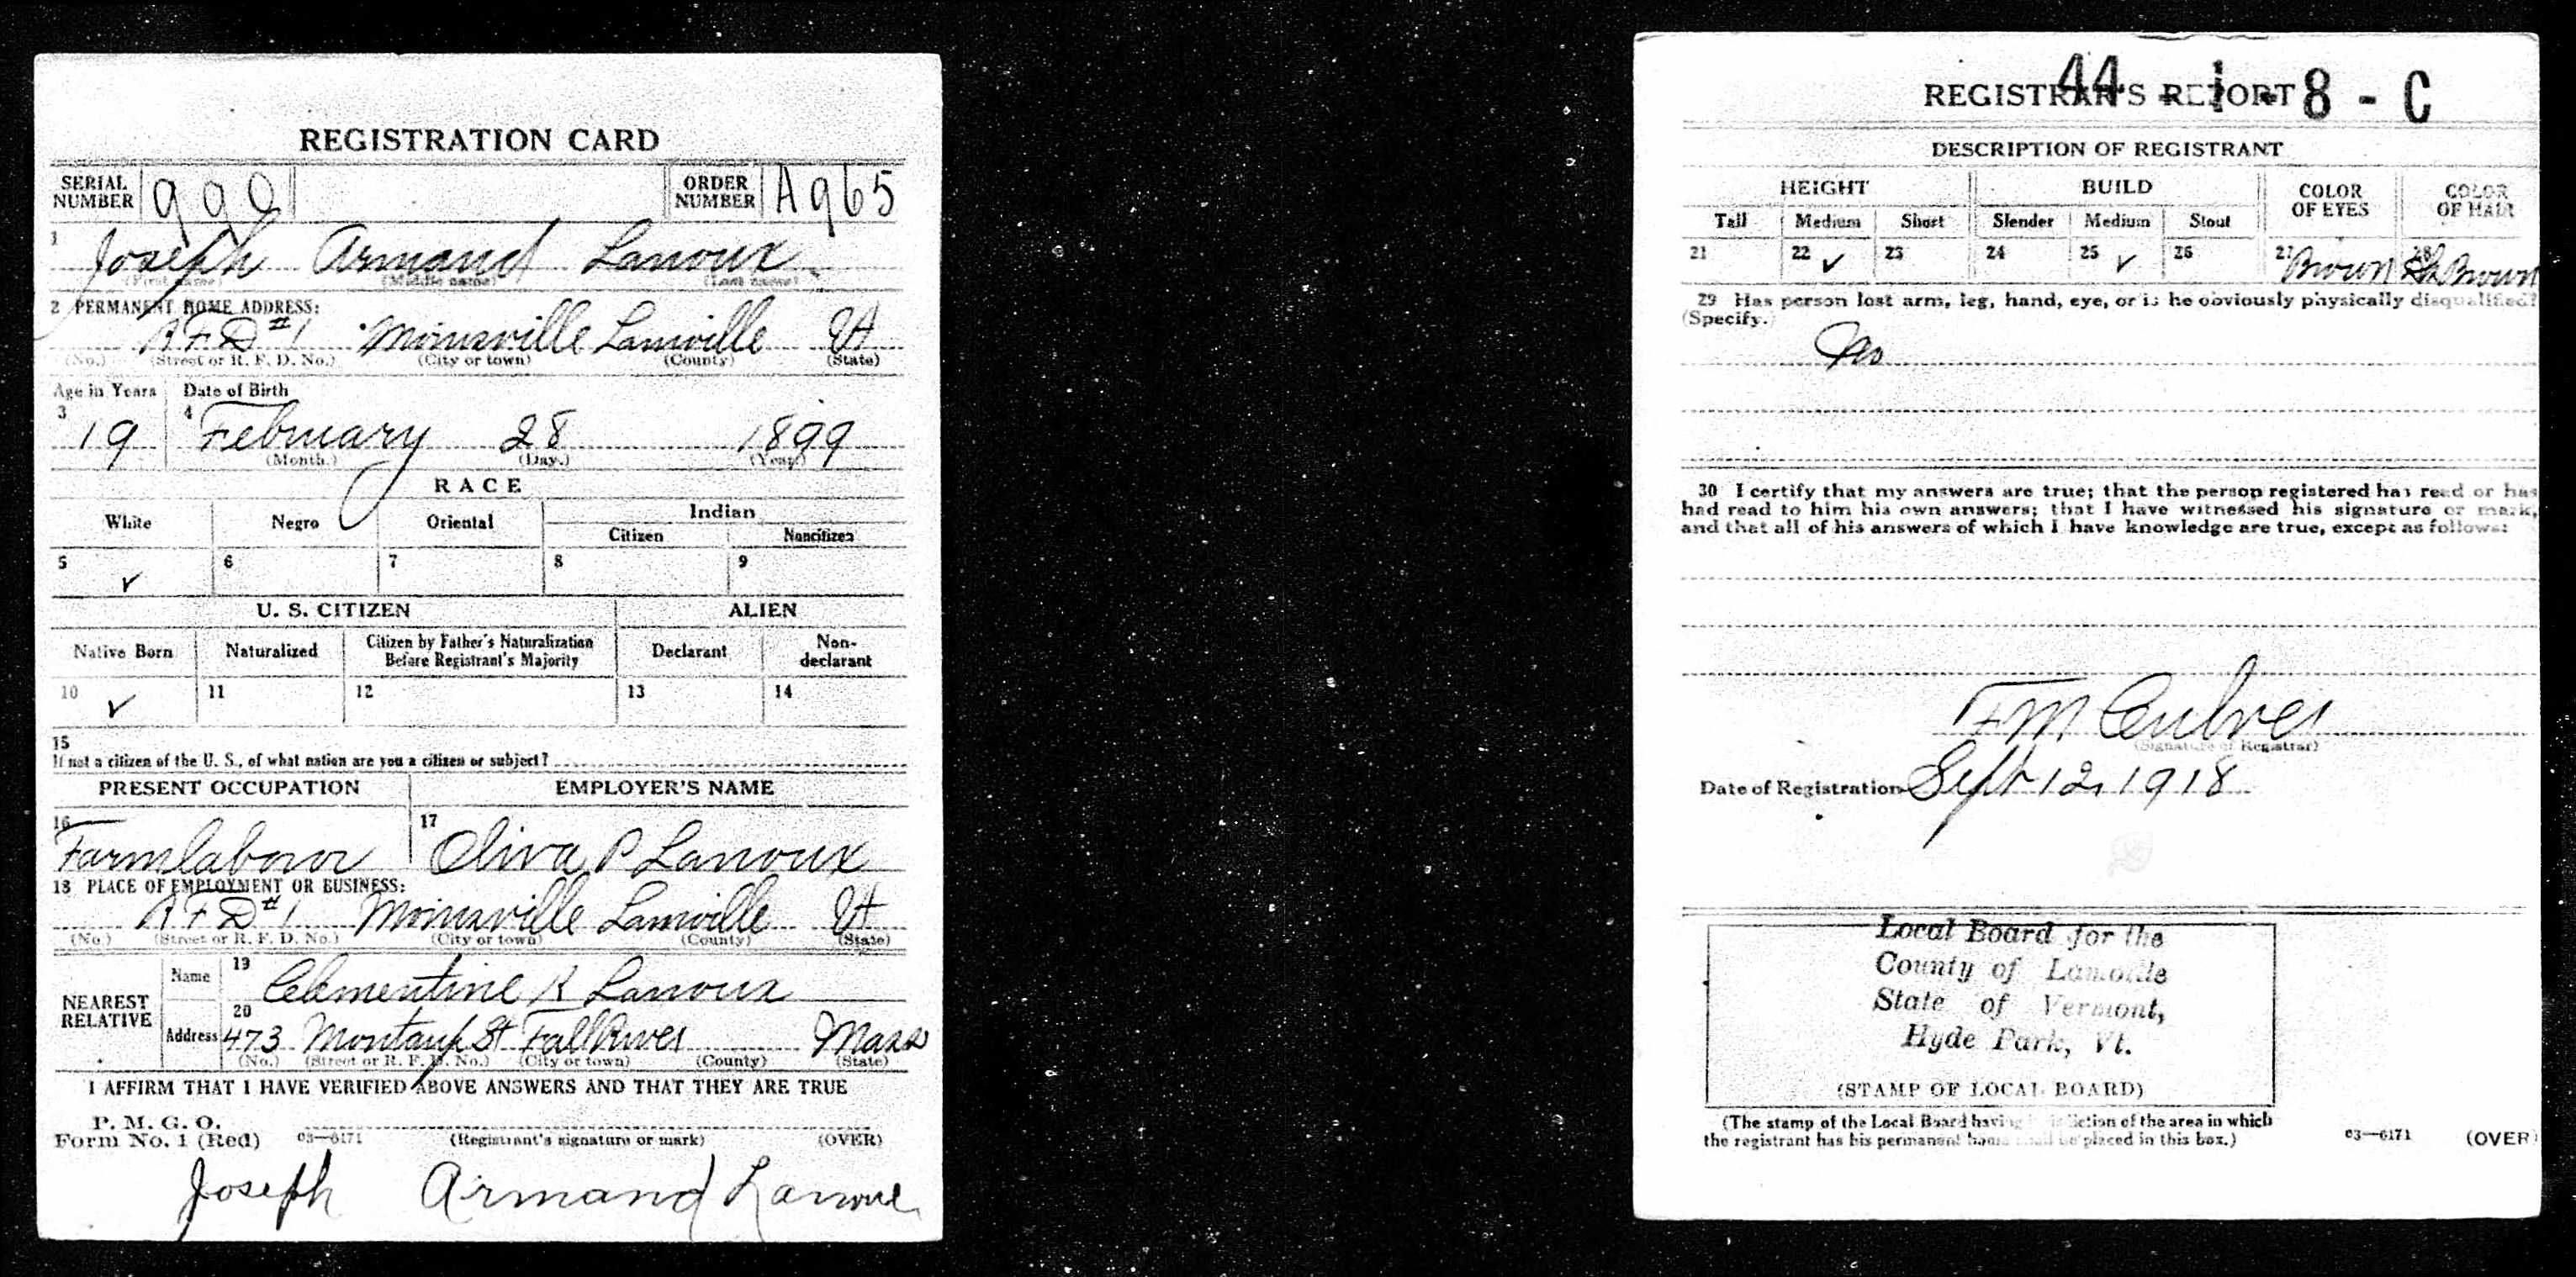 REGISTRATION CARD
SERIAL NUMBER 990 ORDER NUMBER A965
1 Joseph Armand Lanoux
(First name) (Middle name) (Last name)
2 PERMANENT HOME ADDRESS:
R F D #1 Morrisville Lamoille Vt
(No.) (Street or R. F. D. No.) (City or town) (County) (State)
Age in Years Date of Birth
3 19 4 February 28 1899
(Month.) (Day.) (Year.)
RACE
White Negro Oriental Indian
Citizen Noncitizen
5 ✓ 6 7 8 9
U. S. CITIZEN ALIEN
Native Born Naturalized Citizen by Father's Naturalization Before Registrant's Majority Declarant Non-declarant
10 ✓ 11 12 13 14
15
If not a citizen of the U. S., of what nation are you a citizen or subject?
PRESENT OCCUPATION EMPLOYER'S NAME
16 Farm labour 17 Oliva P Lanoux
18 PLACE OF EMPLOYMENT OR BUSINESS:
R F D #1 Morrisville Lamoille Vt
(No.) (Street or R. F. D. No.) (City or town) (County) (State)
NEAREST RELATIVE Name 19 Clementine R Lanoux
Address 20 473 Montaup St Fall River Mass
(No.) (Street or R. F. D. No.) (City or town) (County) (State)
I AFFIRM THAT I HAVE VERIFIED ABOVE ANSWERS AND THAT THEY ARE TRUE
P. M. G. O.
Form No. 1 (Red) 03—6171 (Registrant's signature or mark) (OVER)
Joseph Armand Lanoue
44 - 1 - 8 - C
REGISTRAR'S REPORT
DESCRIPTION OF REGISTRANT
HEIGHT BUILD COLOR OF EYES COLOR OF HAIR
Tall Medium Short Slender Medium Stout
21 22 ✓ 23 24 25 ✓ 26 27 Brown 28 Brown
29 Has person lost arm, leg, hand, eye, or is he obviously physically disqualified?
(Specify.)
No
30 I certify that my answers are true; that the person registered has read or has
had read to him his own answers; that I have witnessed his signature or mark,
and that all of his answers of which I have knowledge are true, except as follows:
F M Culver
(Signature of Registrar)
Date of Registration Sept 12, 1918
Local Board for the
County of Lamoille
State of Vermont,
Hyde Park, Vt.
(STAMP OF LOCAL BOARD)
(The stamp of the Local Board having jurisdiction of the area in which
the registrant has his permanent home shall be placed in this box.)
03—6171 (OVER)